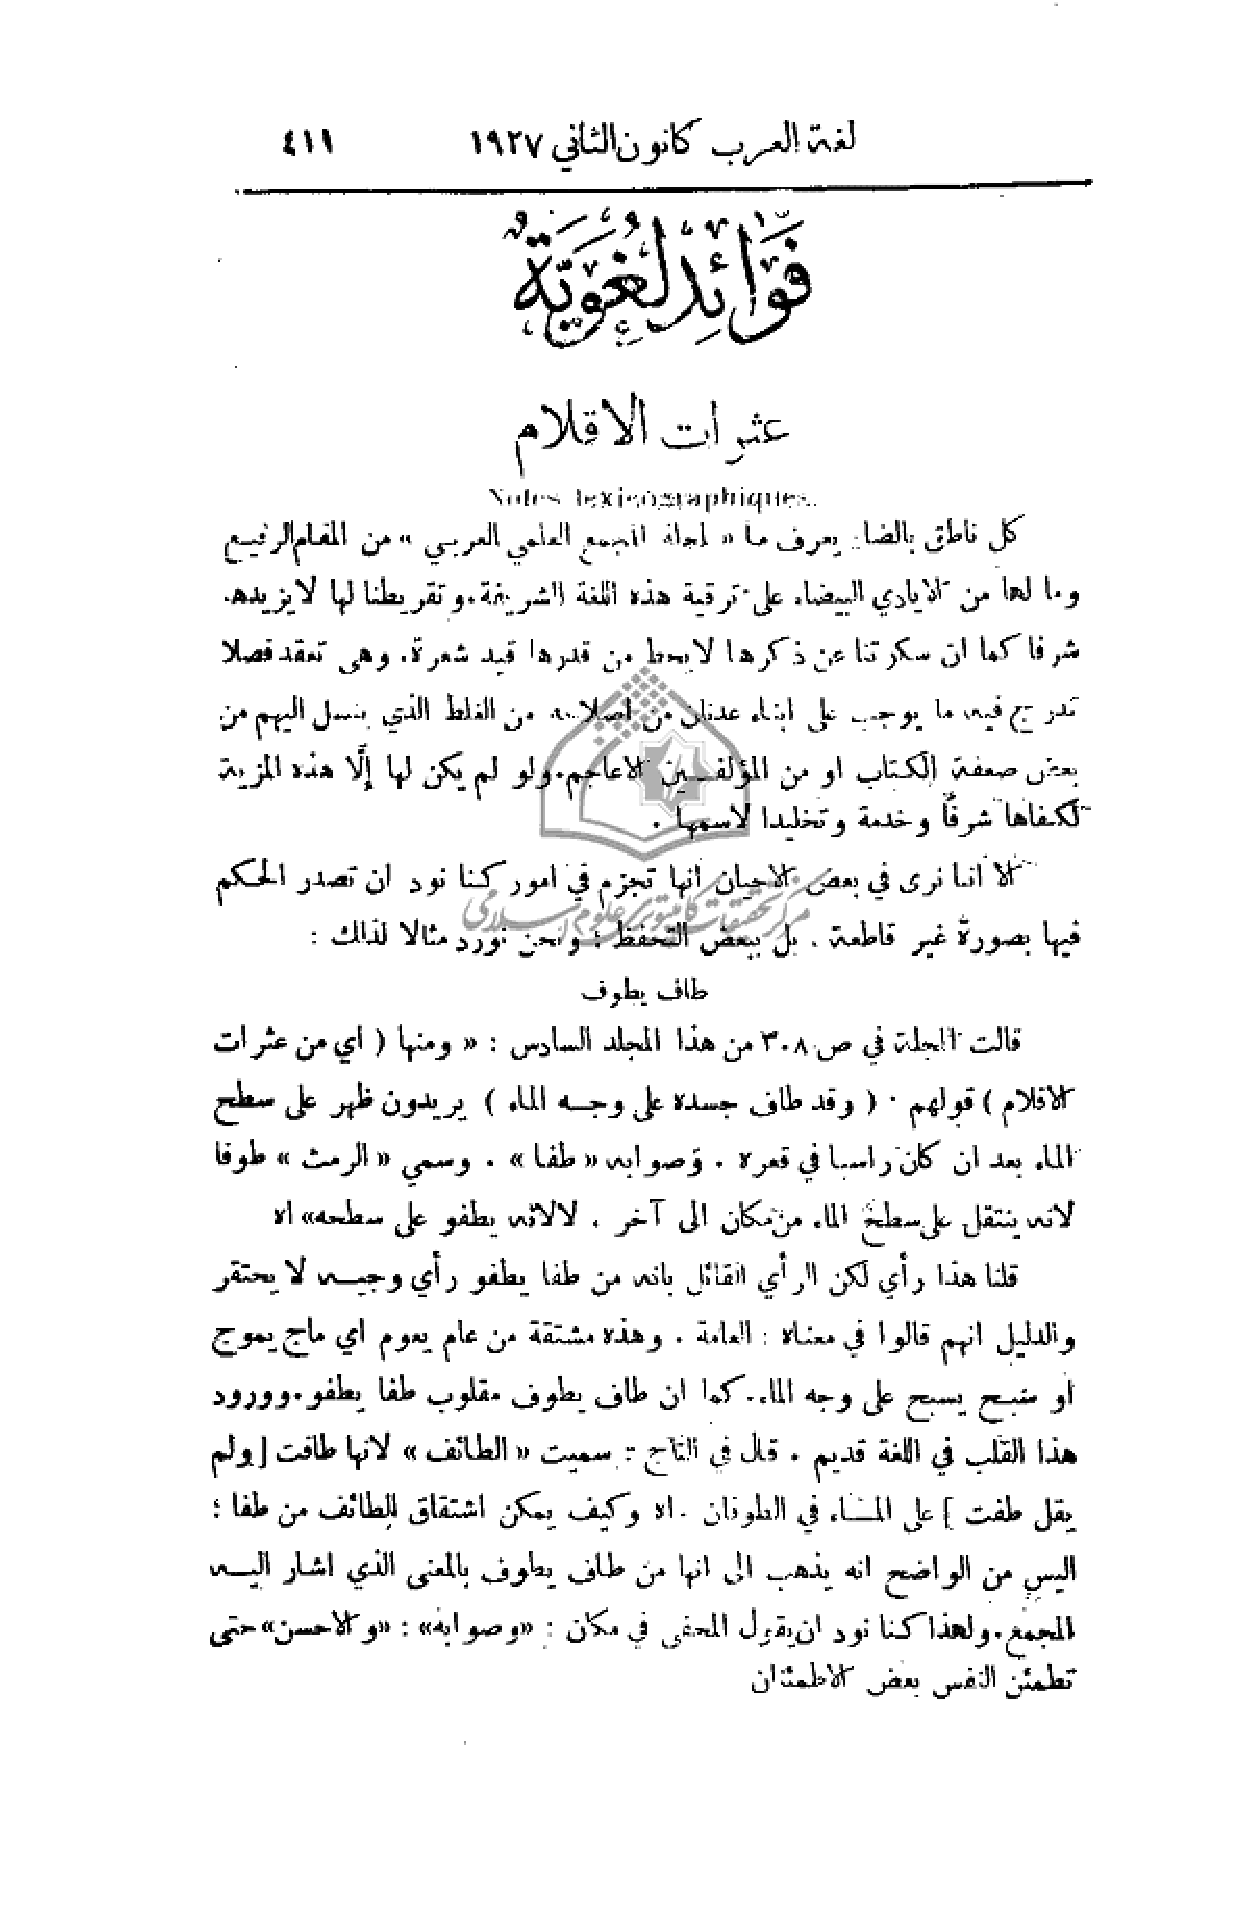 لغة العرب كانون الثاني ١٩٢٧ ٤١١
فَوَائِد لُغَوِيَّةٌ
عثرات الاقلام
Notes lexicographiques.
كل ناطق بالضاد يعرف ما « لمجلة المجمع العلمي العربي » من المقام الرفيع
وما لها من الايادي البيضاء على ترقية هذه اللغة الشريفة. وتقريظنا لها لا يزيدها
شرفا كما ان سكوتنا عن ذكرها لا يحط من قدرها قيد شعرة. وهي تعقد فصلا
تدرج فيه ما يوجب على ابناء عدنان من اصلاحه من الغلط الذي ينسل اليهم من
بعض ضعفة الكتاب او من المؤلفين الاعاجم. ولو لم يكن لها إلَّا هذه المزية
لكفاها شرفًا وخدمة وتخليدا لاسمها .
الا اننا نرى في بعض الاحيان انها تجزم في امور كنا نود ان تصدر الحكم
فيها بصورة غير قاطعة . بل ببعض التحفظ ؛ ونحن نورد مثالا لذلك :
مركز تحقيقات كامپيوتری علوم اسلامی
طاف يطوف
قالت المجلة في ص ٣٠٨ من هذا المجلد السادس : « ومنها ( اي من عثرات
الاقلام ) قولهم · ( وقد طاف جسده على وجه الماء ) يريدون ظهر على سطح
الماء بعد ان كان راسبا في قعره . وصوابه « طفا » . وسمي « الرمث » طوفا
لانه ينتقل على سطح الماء من مكان الى آخر . لا لانه يطفو على سطحه» اه
قلنا هذا رأي لكن الرأي القائل بانه من طفا يطفو رأي وجيه لا يحتقر
والدليل انهم قالوا في معناه : العامة . وهذه مشتقة من عام يعوم اي ماج يموج
او سبح يسبح على وجه الماء.. كما ان طاف يطوف مقلوب طفا يطفو. وورود
هذا القلب في اللغة قديم . قال في التاج : سميت « الطائف » لانها طافت [ ولم
يقل طفت ] على الماء في الطوفان . اه وكيف يمكن اشتقاق للطائف من طفا ؛
اليس من الواضح انه يذهب الى انها من طاف يطوف بالمعنى الذي اشار اليه
المجمع. ولهذا كنا نود ان يقول المحفى في مكان : «وصوابه» : «والاحسن» حتى
تطمئن النفس بعض الاطمئنان